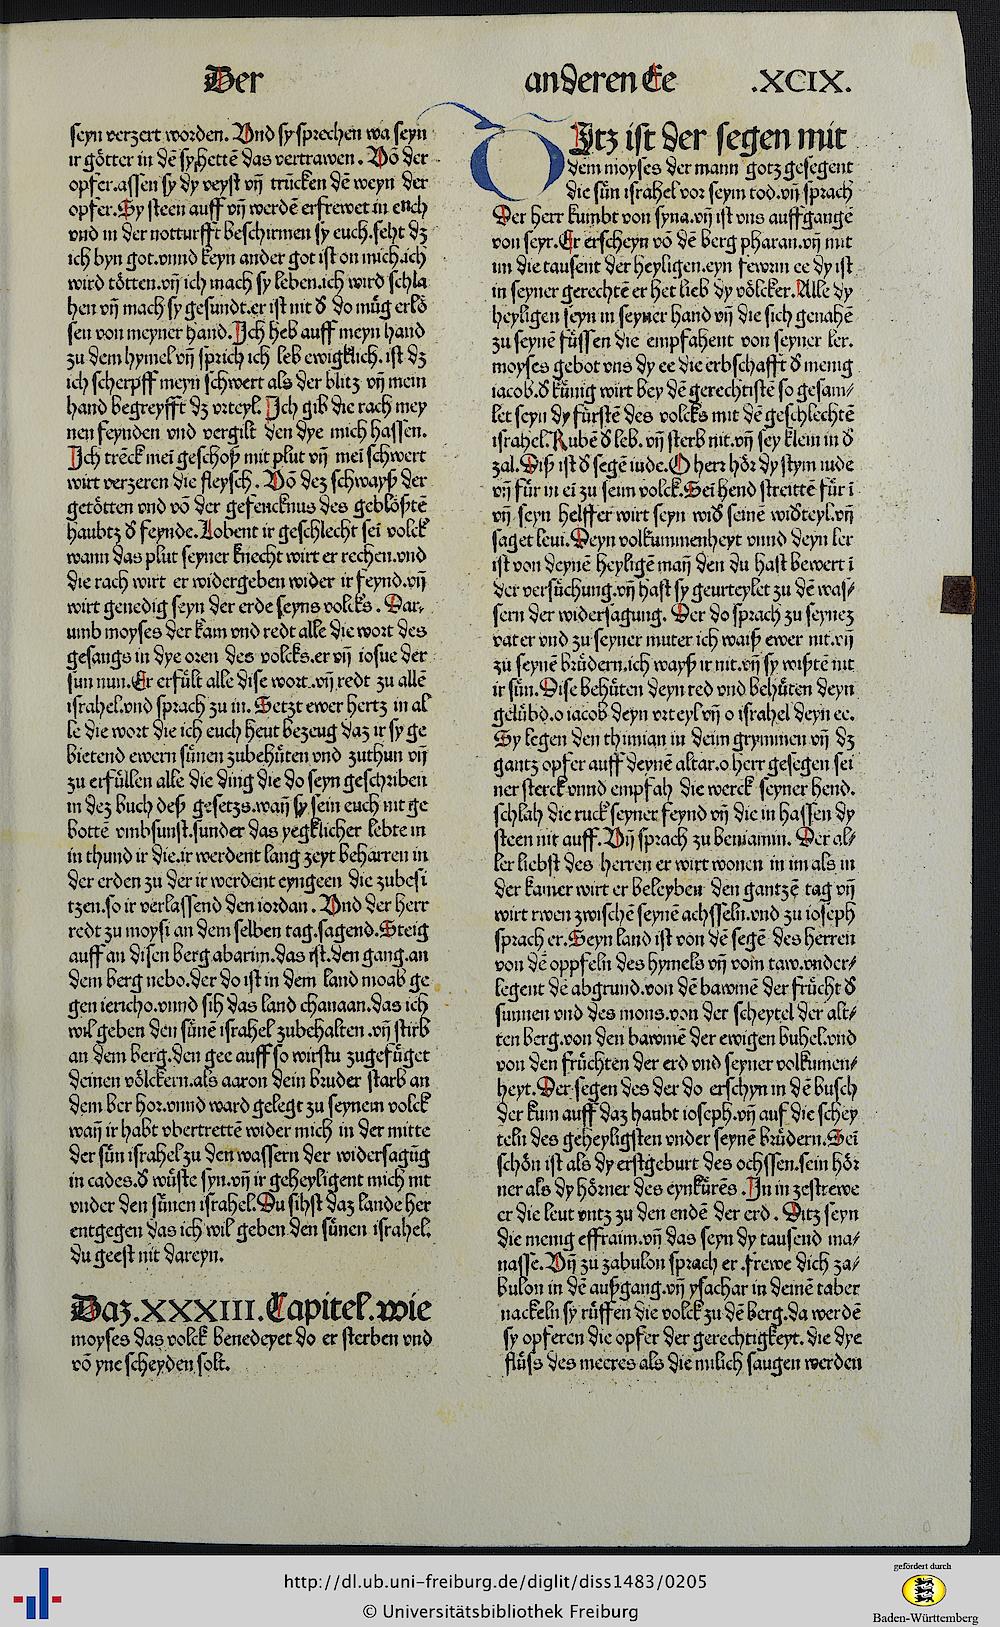 Der anderen Ee .XCIX.
seyn verzert worden. Vnd sy sprechen wa seyn
ir götter in dē sy hettē das vertrawen. Võ der
opfer.assen sy dy veyst vñ trūcken dē weyn der
opfer.Sy steen auff vñ werdē erfrewet in euch
vnd in der notturfft beschirmen sy euch.seht dz
ich byn got.vnnd keyn ander got ist on mich.ich
wird tötten.vñ ich mach sy leben.ich wird schla
hen vñ mach sy gesundt.er ist nit d̄ do müg erlö
sen von meyner hand. Ich heb auff meyn hand
zu dem hymel vñ sprich ich leb ewigklich. ist dz
ich scherpff meyn schwert als der blitz vñ mein
hand begreyfft dz vrteyl. Ich gib die rach mey
nen feynden vnd vergilt den dye mich hassen.
Ich trēck mei geschoß mit plut vñ mei schwert
wirt verzeren die fleysch. Võ dez schwayß der
getötten vnd võ der gefencknus des geblößtē
haubtz d̄ feynde. Lobent ir geschlecht sei volck
wann das plut seyner knecht wirt er rechen.vnd
die rach wirt er widergeben wider ir feynd.vñ
wirt genedig seyn der erde seyns volcks. Dar-
umb moyses der kam vnd redt alle die wort des
gesangs in dye oren des volcks.er vñ iosue der
sun nun.Er erfült alle dise wort.vñ redt zu allē
israhel.vnd sprach zu in. Setzt ewer hertz in al
le die wort die ich euch heut bezeug daz ir sy ge
bietend ewern sünen zubehüten vnd zuthun vñ
zu erfüllen alle die ding die do seyn geschriben
in dez buch deß gesetzs.wañ sy sein euch nit ge
bottē vmbsunst.sunder das yegklicher lebte in
in thund ir die.ir werdent lang zeyt beharren in
der erden zu der ir werdent eyngeen die zubesi
tzen.so ir verlassend den iordan. Vnd der herr
redt zu moysi an dem selben tag.sagend.Steig
auff an disen berg abarim.das ist.den gang.an
dem berg nebo.der do ist in dem land moab ge
gen iericho.vnnd sih das land chanaan.das ich
wil geben den sünē israhel zubehalten.vñ stirb
an dem berg.den gee auff so wirstu zugefüget
deinen völckern.als aaron dein bruder starb an
dem ber hor.vnnd ward gelegt zu seynem volck
wañ ir habt vbertrettē wider mich in der mitte
der sün israhel zu den wassern der widersagūg
in cades.d̄ wüste syn.vñ ir geheyligent mich nit
vnder den sünen israhel.Du sihst daz lande her
entgegen das ich wil geben den sünen israhel.
du geest nit dareyn.
Daz.XXXIII.Capitel.wie
moyses das volck benedeyet do er sterben vnd
võ yne scheyden solt.
DItz ist der segen mit
dem moyses der mann gotz gesegent
die sün israhel vor seym tod.vñ sprach
Der herr kumbt von syna.vñ ist vns auffgangē
von seyr.Er erscheyn võ dē berg pharan.vñ mit
im die tausent der heyligen.eyn fewrin ee dy ist
in seyner gerechtē er het lieb dy völcker.Alle dy
heyligen seyn in seyner hand vñ die sich genahē
zu seynē füssen die empfahent von seyner ler.
moyses gebot vns dy ee die erbschafft d̄ menig
iacob.d̄ künig wirt bey dē gerechtistē so gesam-
let seyn dy fürstē des volcks mit dē geschlechtē
israhel.Rubē d̄ leb.vñ sterb nit.vñ sey klein in d̄
zal.Diß ist d̄ segē iude.O herr hör dy stym iude
vñ für in ei zu seim volck.Sei hend streittē für ī
vñ seyn helffer wirt seyn wid̄ seinē wid̄teyl.vñ
saget leui.Deyn volkummenheyt vnnd deyn ler
ist von deynē heyligē mañ den du hast bewert ī
der versüchung.vñ hast sy geurteylet zu dē was-
sern der widersagung. Der do sprach zu seynez
vater vnd zu seyner muter ich waiß ewer nit.vñ
zü seynē brüdern.ich wayß ir nit.vñ sy wißtē nit
ir sün.Dise behüten deyn red vnd behüten deyn
gelübd.o iacob deyn vrteyl vñ o israhel deyn ee.
Sy legen den thimian in deim grymmen vñ dz
gantz opfer auff deynē altar.o herr gesegen sei
ner sterck vnnd empfah die werck seyner hend.
schlah die ruck seyner feynd vñ die in hassen dy
steen nit auff.Vñ sprach zu beniamin. Der al-
ler liebst des herren er wirt wonen in im als in
der kamer wirt er beleyben den gantzē tag vñ
wirt rwen zwischē seynē achsseln.vnd zu ioseph
sprach er.Seyn land ist von dē segē des herren
von dē oppfeln des hymels vñ vom taw.vnder-
legent dē abgrund.von dē bawmē der frücht d̄
sunnen vnd des mons.von der scheytel der alt-
ten berg.von den bawmē der ewigen buhel.vnd
von den früchten der erd vnd seyner volkumen-
heyt.Der segen des der do erschyn in dē busch
der kum auff daz haubt ioseph.vñ auf die schey
teln des geheyligsten vnder seynē brüdern.Sei
schön ist als dy erstgeburt des ochssen.sein hör
ner als dy hörner des eynkürēs. In in zestrewe
er die leut vntz zu den endē der erd. Ditz seyn
die menig effraim.vñ das seyn dy tausend ma-
nasse. Vñ zu zabulon sprach er.frewe dich za-
bulon in dē außgang.vñ ysachar in deinē taber
nackeln sy rüffen die volck zu dē berg.da werdē
sy opferen die opfer der gerechtigkeyt. die dye
flüss des meeres als die milich saugen werden
http://dl.ub.uni-freiburg.de/diglit/diss1483/0205
© Universitätsbibliothek Freiburg
gefördert durch
Baden-Württemberg